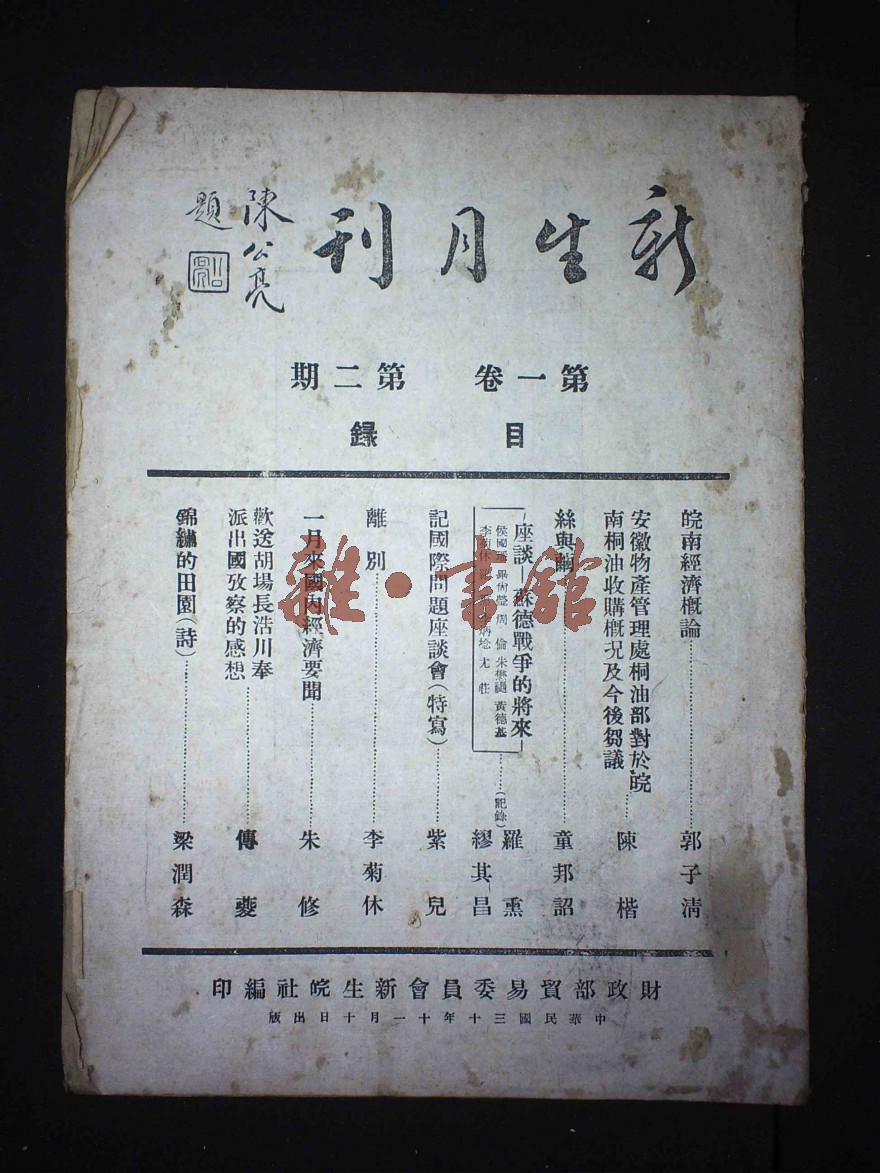 新生月刊
陳公亮
題
第一卷 第二期
目錄
皖南經濟概論……郭子清
安徽物產管理處桐油部對於皖
南桐油收購概況及今後芻議……陳楷
絲與繭……童邦詔
座談—蘇德戰爭的將來
周倫 朱懋 黃德基
尤莊
(記錄)羅熏
繆其昌
記國際問題座談會(特寫)……紫兒
離別……李菊休
一月來國內經濟要聞……朱修
歡送胡場長浩川奉
派出國攷察的感想……傅夔
錦繡的田園(詩)……梁潤森
財政部貿易委員會新生皖社編印
中華民國三十年十一月十日出版
雜·書舘